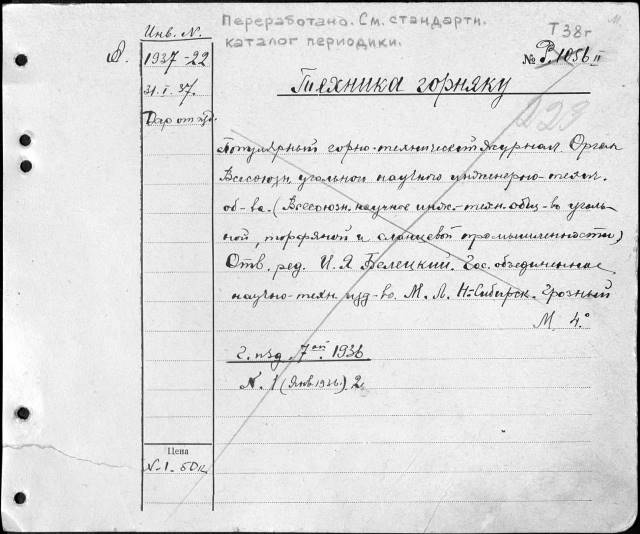 Переработано. См. стандартн.
каталог периодики.
Т38г
№ Р.1056 II
223
Инв. N.
1937-22
31.I.37.
Дар от изд.
Техника горняку
Популярный горно-технический журнал. Орган
Всесоюзн. угольной научного инженерно-техн.
об-ва. (Всесоюзн. научное инж.-техн. общ-во уголь-
ной, торфяной и сланцевой промышленности)
Отв. ред. И. Я. Белецкий. Гос. объединенное
научно-техн. изд-во. М. Л. Н-Сибирск. Грозный
М 4°
Г. изд 7ой. 1936
N. 1 (Янв 1936) 2
Цена
N-1-50к